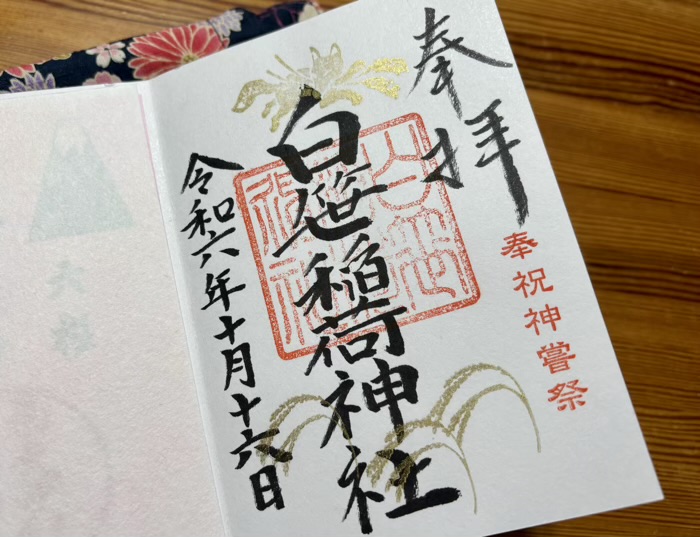 奉拝
奉祝神嘗祭
白笹稲荷神社
令和六年十月十六日